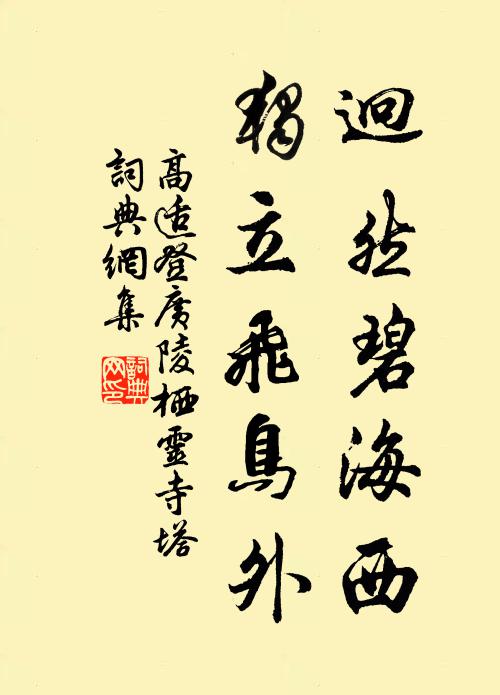 迥然碧海西
獨立飛鳥外
高適登廣陵栖靈寺塔
詞典網集
詞典網印